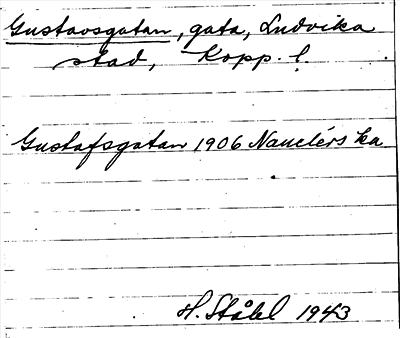 Gustavsgatan, gata, Ludvika
stad, Kopp. l.
Gustafsgatan 1906 Nauclérs ka
H. Ståhl 1943